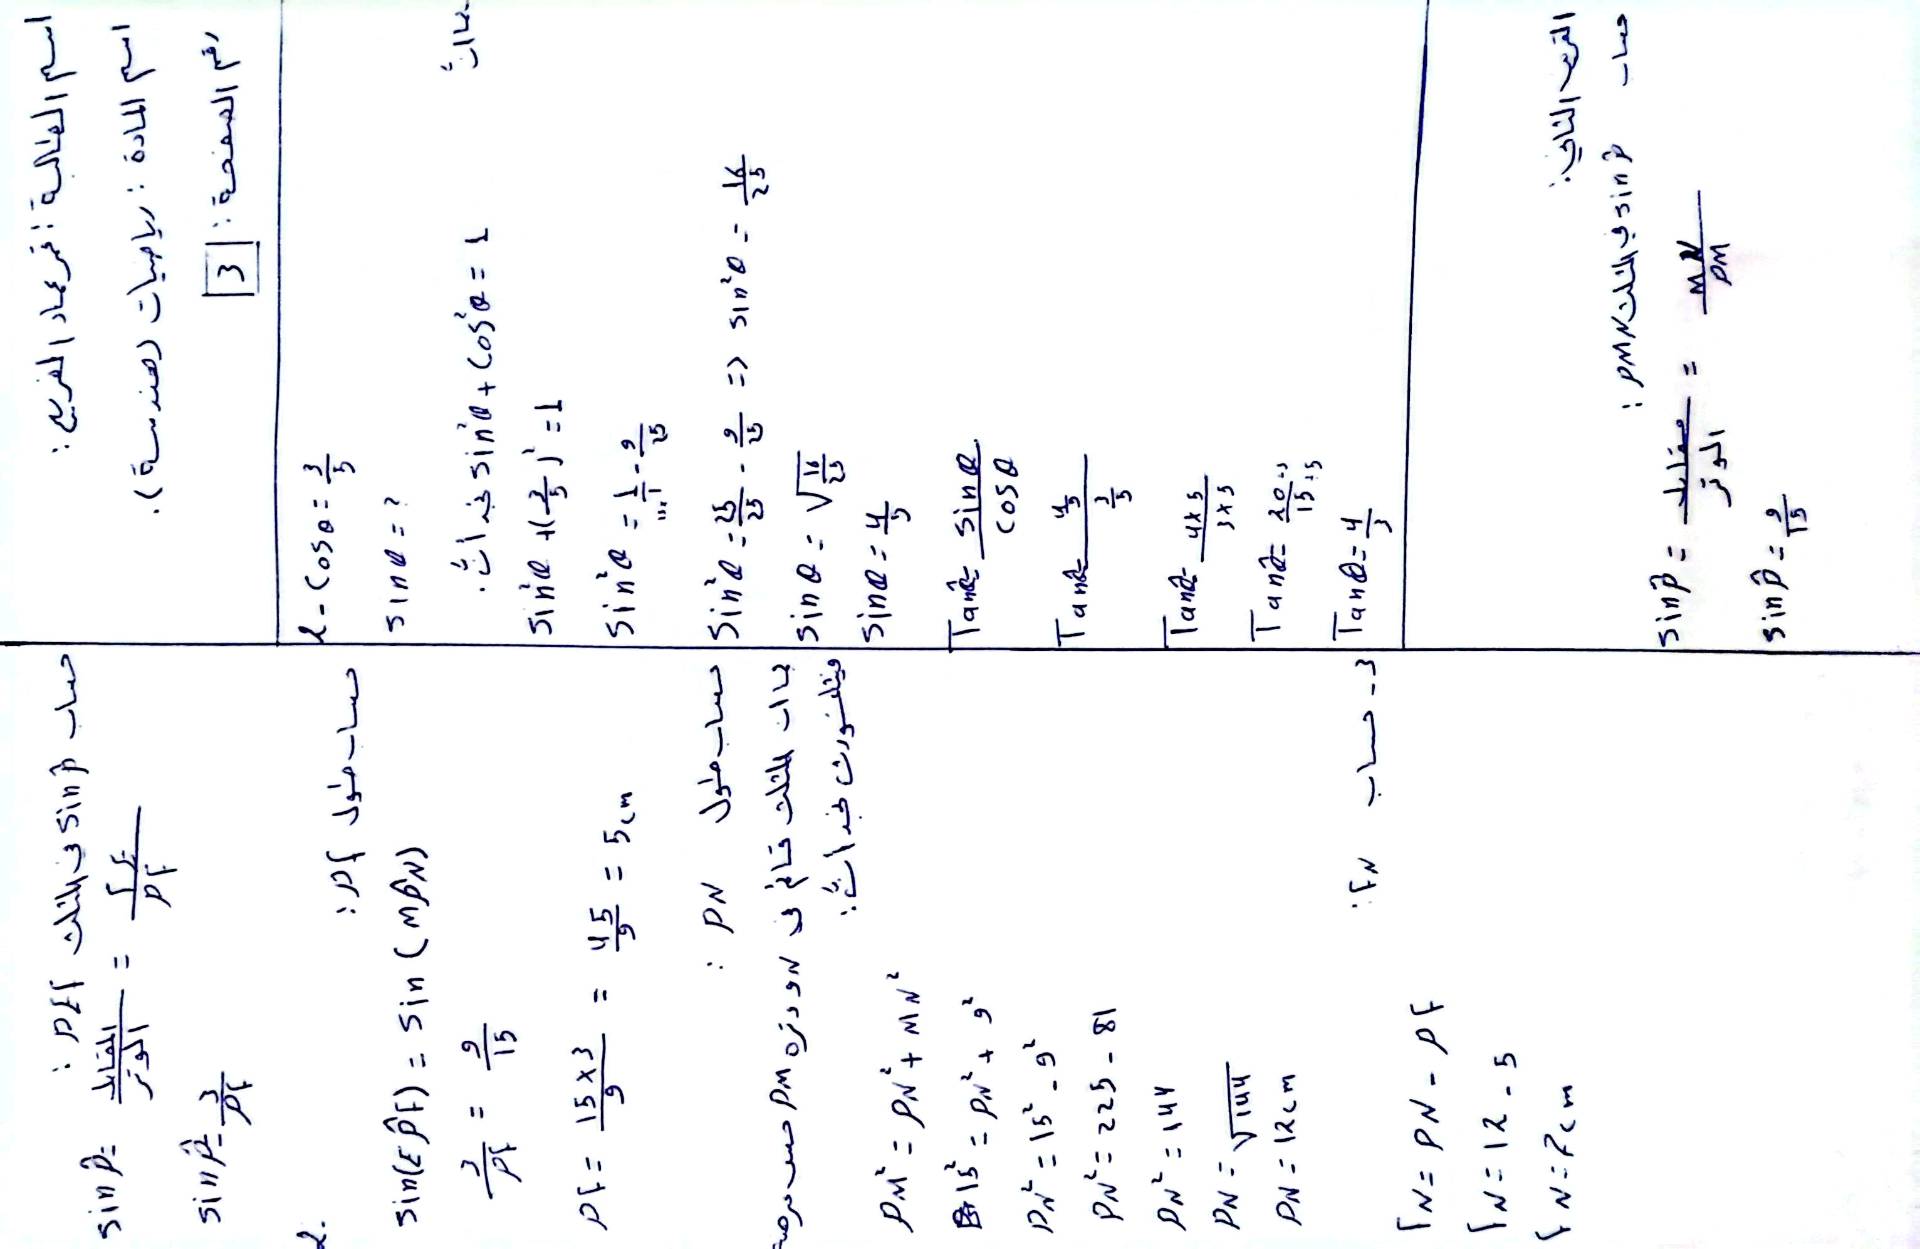 اسم الطالبة: قمر عماد القريع:
اسم المادة: رياضيات (هندسة).
رقم الصفحة: 3
2- Cosθ = 3/5
sinθ = ?
فإن sin²θ + Cos²θ = 1
sin²θ + (3/5)² = 1
sin²θ = 1/1 - 9/25
sin²θ = 25/25 - 9/25 => sin²θ = 16/25
sinθ = √16/25
sinθ = 4/5
Tanθ = sinθ/cosθ
Tanθ = 4/5 / 3/5
Tanθ = 4×5/3×5
Tanθ = 20÷5/15÷5
Tanθ = 4/3
التمرين الثاني:
حساب sin P̂ في المثلث PMN :
sin P̂ = مقابل/الوتر = MN/PM
sin P̂ = 9/15
حساب sin P̂ في المثلث PEF :
sin P̂ = المقابل/الوتر = FE/PF
sin P̂ = 3/PF
2.
حساب طول PF :
sin(EP̂F) = sin(MP̂N)
3/PF = 9/15
PF = 15×3/9 = 45/9 = 5cm
حساب طول PN :
بما أن المثلث قائم في N ووتره PM حسب مبرهنة
فيثاغورث فإن:
PM² = PN² + MN²
15² = PN² + 9²
PN² = 15² - 9²
PN² = 225 - 81
PN² = 144
PN = √144
PN = 12cm
3- حساب FN :
FN = PN - PF
FN = 12 - 5
FN = 7cm